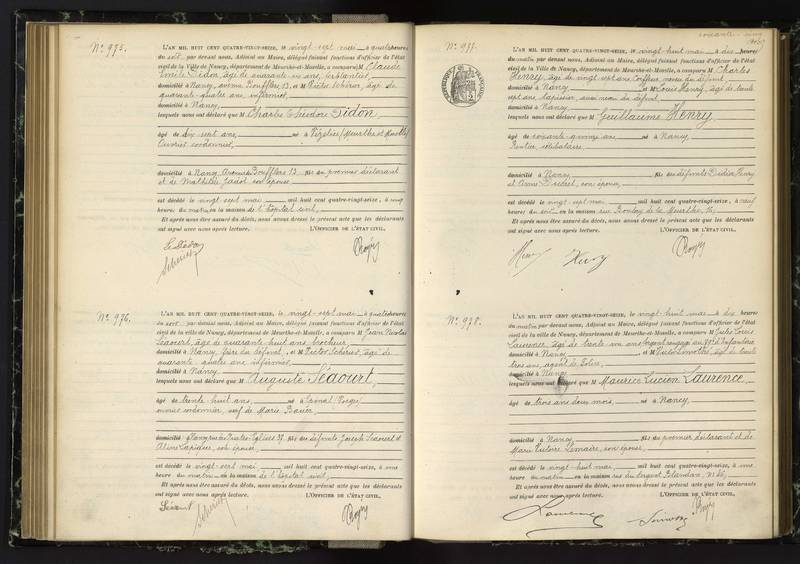 N° 975.
L'AN MIL HUIT CENT QUATRE-VINGT-SEIZE, le vingt-sept mai à quatre heures
du soir, par devant nous, Adjoint au Maire, délégué faisant fonctions d'officier de l'état
civil de la ville de Nancy, département de Meurthe-et-Moselle, a comparu M Claude
Emile Didon, âgé de quarante un ans, ferblantier
domicilié à Nancy, avenue Boufflers, 13, et M Victor Scherier, âgé de
quarante-quatre ans, infirmier,
domicilié à Nancy
lesquels nous ont déclaré que M Charles Théodore Didon,
âgé de dix-sept ans, né à Vézelise (Meurthe et Moselle)
Ouvrier cordonnier,
domicilié à Nancy, Avenue Boufflers 13. fils du premier déclarant
et de Mathilde son épouse
est décédé le vingt-sept mai mil huit cent quatre-vingt-seize, à cinq
heures du matin en la maison de l'hôpital civil,
Et après nous être assuré du décès, nous avons dressé le présent acte que les déclarants
ont signé avec nous après lecture. L'OFFICIER DE L'ÉTAT CIVIL,
E. Didon
N° 976.
L'AN MIL HUIT CENT QUATRE-VINGT-SEIZE, le vingt-sept mai à quatre heures
du soir par devant nous, Adjoint au Maire, délégué faisant fonctions d'officier de l'état
civil de la ville de Nancy, département de Meurthe-et-Moselle, a comparu M Jean Nicolas
Séaourt, âgé de quarante huit ans, brocheur
domicilié à Nancy, frère du défunt, et M Victor Scherier, âgé de
quarante quatre ans, infirmier
domicilié à Nancy
lesquels nous ont déclaré que M Auguste Séaourt,
âgé de trente huit ans, né à Epinal (Vosges)
ouvrier cordonnier, veuf de Marie Bauer
domicilié à Nancy, rue des Quatre Eglises 37. fils des défunts Joseph Séaourt et
son épouse
est décédé le vingt-sept mai mil huit cent quatre-vingt-seize, à une
heure du matin en la maison de l'hôpital civil,
Et après nous être assuré du décès, nous avons dressé le présent acte que les déclarants
ont signé avec nous après lecture. L'OFFICIER DE L'ÉTAT CIVIL,
Séaourt
soixante-cinq
N° 977.
L'AN MIL HUIT CENT QUATRE-VINGT-SEIZE, le vingt-huit mai à dix heures
du matin, par devant nous, Adjoint au Maire, délégué faisant fonctions d'officier de l'état
civil de la Ville de Nancy, département de Meurthe-et-Moselle, a comparu M Charles
Henry, âgé de vingt sept ans, Coiffeur, neveu du défunt,
domicilié à Nancy, et M Louis Henry, âgé de trente
sept ans, tapissier, aussi neveu du défunt
domicilié à Nancy
lesquels nous ont déclaré que M Guillaume Henry,
âgé de soixante-quinze ans né à Nancy,
Rentier célibataire
domicilié à Nancy fils des défunts Didier Henry
et Anne son épouse,
est décédé le vingt sept mai mil huit cent quatre-vingt-seize, à neuf
heures du soir en la maison rue Boulay de la Meurthe,
Et après nous être assuré du décès, nous avons dressé le présent acte que les déclarants
ont signé avec nous après lecture. L'OFFICIER DE L'ÉTAT CIVIL,
Henry Henry
N° 978.
L'AN MIL HUIT CENT QUATRE-VINGT-SEIZE, le vingt-huit mai à dix heures
du matin par devant nous, Adjoint au Maire, délégué faisant fonctions d'officier de l'état
civil de la ville de Nancy, département de Meurthe-et-Moselle, a comparu M Jules Louis
Laurence, âgé de trente un ans, Sergent rengagé au d'Infanterie
domicilié à Nancy, et M âgé de trente
trois ans, agent de Police
domicilié à Nancy
lesquels nous ont déclaré que M Maurice Lucien Laurence,
âgé de trois ans deux mois, né à Nancy,
domicilié à Nancy fils du premier déclarant et de
Marie Victoire Lemaire, son épouse,
est décédé le vingt sept mai mil huit cent quatre-vingt-seize, à une
heure du matin en la maison rue du Sergent Blandan,
Et après nous être assuré du décès, nous avons dressé le présent acte que les déclarants
ont signé avec nous après lecture. L'OFFICIER DE L'ÉTAT CIVIL,
Laurence